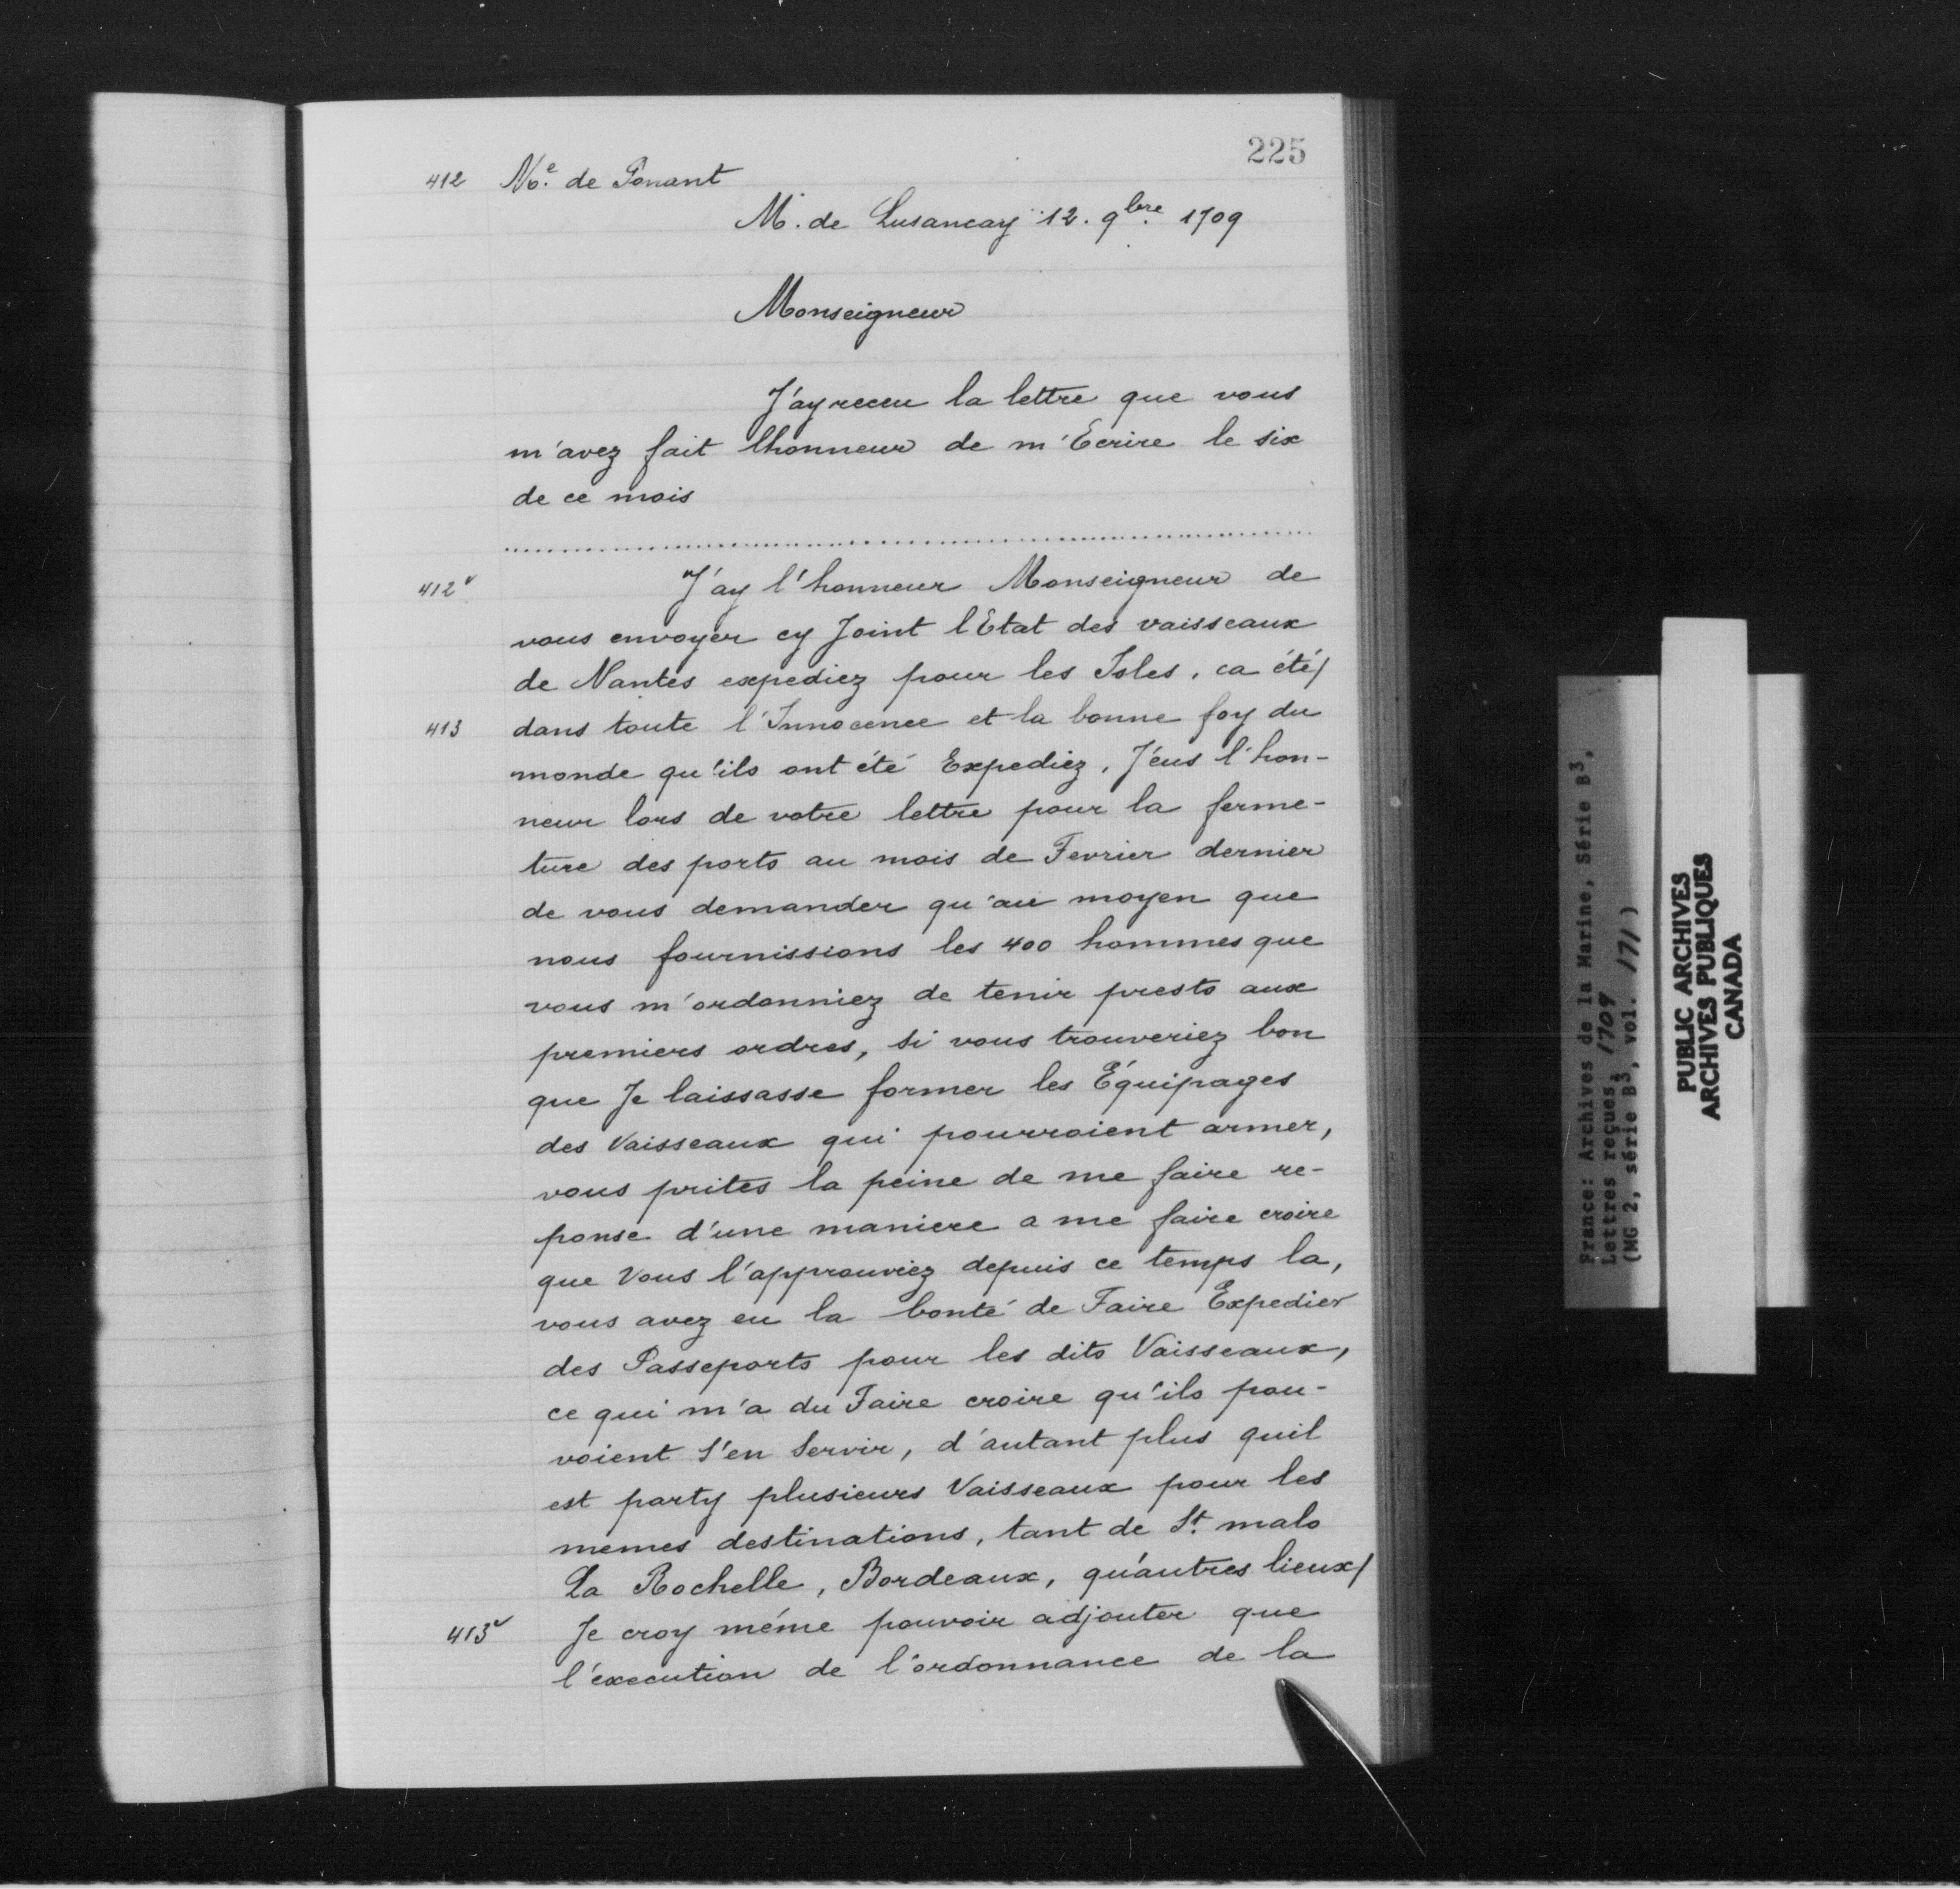 225
412 No.e de Ponant
M. de Lusancay 12. 9bre. 1709
Monseigneur
J'ay receu la lettre que vous
m'avez fait lhonneur de m'Ecrire le six
de ce mois
412v J'ay l'honneur Monseigneur de
vous envoyer cy Joint l'Etat des vaisseaux
de Nantes expediez pour les Isles, ca été/
413 dans toute l'Innocence et la bonne foy du
monde qu'ils ont été Expediez, J'eus l'hon-
neur lors de votre lettre pour la ferme-
ture des ports au mois de Fevrier dernier
de vous demander qu'au moyen que
nous fournissions les 400 hommes que
vous m'ordonniez de tenir prests aux
premiers ordres, si vous trouveriez bon
que Je laissasse former les Équipages
des Vaisseaux qui pourroient armer,
vous prites la peine de me faire re-
ponse d'une maniere a me faire croire
que Vous l'approuviez depuis ce temps la,
vous avez eu la bonté de Faire Expedier
des Passeports pour les dits Vaisseaux,
ce qui m'a du Faire croire qu'ils pou-
voient S'en Servir, d'autant plus quil
est party plusieurs Vaisseaux pour les
memes destinations, tant de St. malo
La Rochelle, Bordeaux, qu'autres lieux/
413v Je croy méme pouvoir adjouter que
l'éxecution de l'ordonnance de la
France: Archives de la Marine, Série B3,
Lettres reçues, 1709
(MG 2, série B3, vol. 171)
PUBLIC ARCHIVES
ARCHIVES PUBLIQUES
CANADA